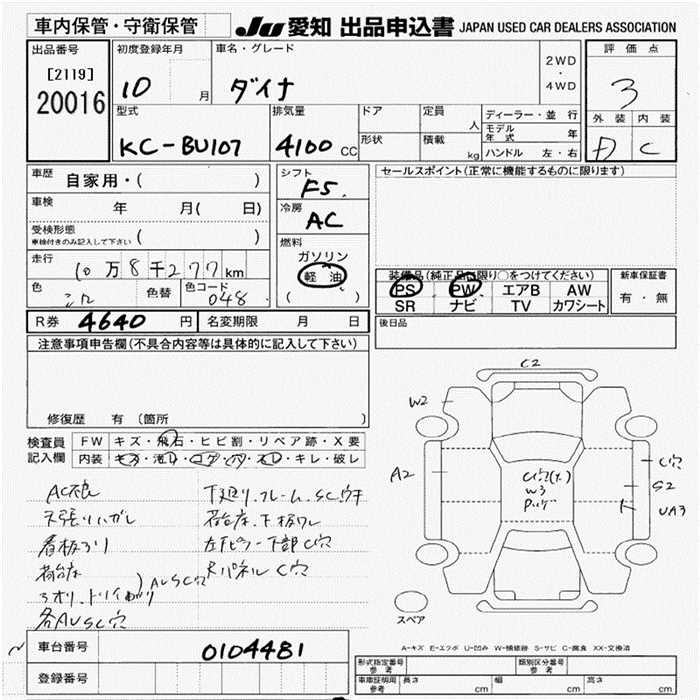 車内保管・守衛保管
JU 愛知 出品申込書 JAPAN USED CAR DEALERS ASSOCIATION
出品番号
[2119]
20016
初度登録年月
10 月
車名・グレード
ダイナ
2WD
・
4WD
評価点
3
外装 内装
D C
型式
KC-BU107
排気量
4100 CC
ドア
形状
定員
人
積載
kg
ディーラー・並行
モデル年式 年
ハンドル 左・右
車歴
自家用・( )
車検
年 月( 日)
受検形態
車検付きのみ記入して下さい ( )
走行
10万8千277km
色
色替
色コード
048
シフト
F5
冷房
AC
燃料
ガソリン
軽油
( )
セールスポイント(正常に機能するものに限ります)
装備品(純正品に限り○をつけてください)
PS PW エアB AW
SR ナビ TV カワシート
新車保証書
有・無
R券 4640 円
名変期限 月 日
後日品
注意事項申告欄(不具合内容等は具体的に記入して下さい)
修復歴 有 (箇所 )
検査員
記入欄
FW キズ・飛石・ヒビ割・リペア跡・X要
内装 キズ・汚れ・コゲ・穴・スレ・キレ・破レ
AC不良
天張りハガレ
看板うり
荷台床
3オリ、ドリイ凹り ) AUSC穴
各AUSC穴
下廻り、フレーム、SCウキ
荷台床、下板ワレ
左下ピラー下部C穴
Rパネル C穴
C2
W2
A2
C穴(t.)
W3
C穴
S2
UA3
スペア
A-キズ E-エクボ U-凹み W-補修跡 S-サビ C-腐食 XX-交換済
車台番号
0104481
登録番号
形式指定番号
参考
類別区分番号
参考
車庫証明用
参考
長さ cm
幅 cm
高さ cm